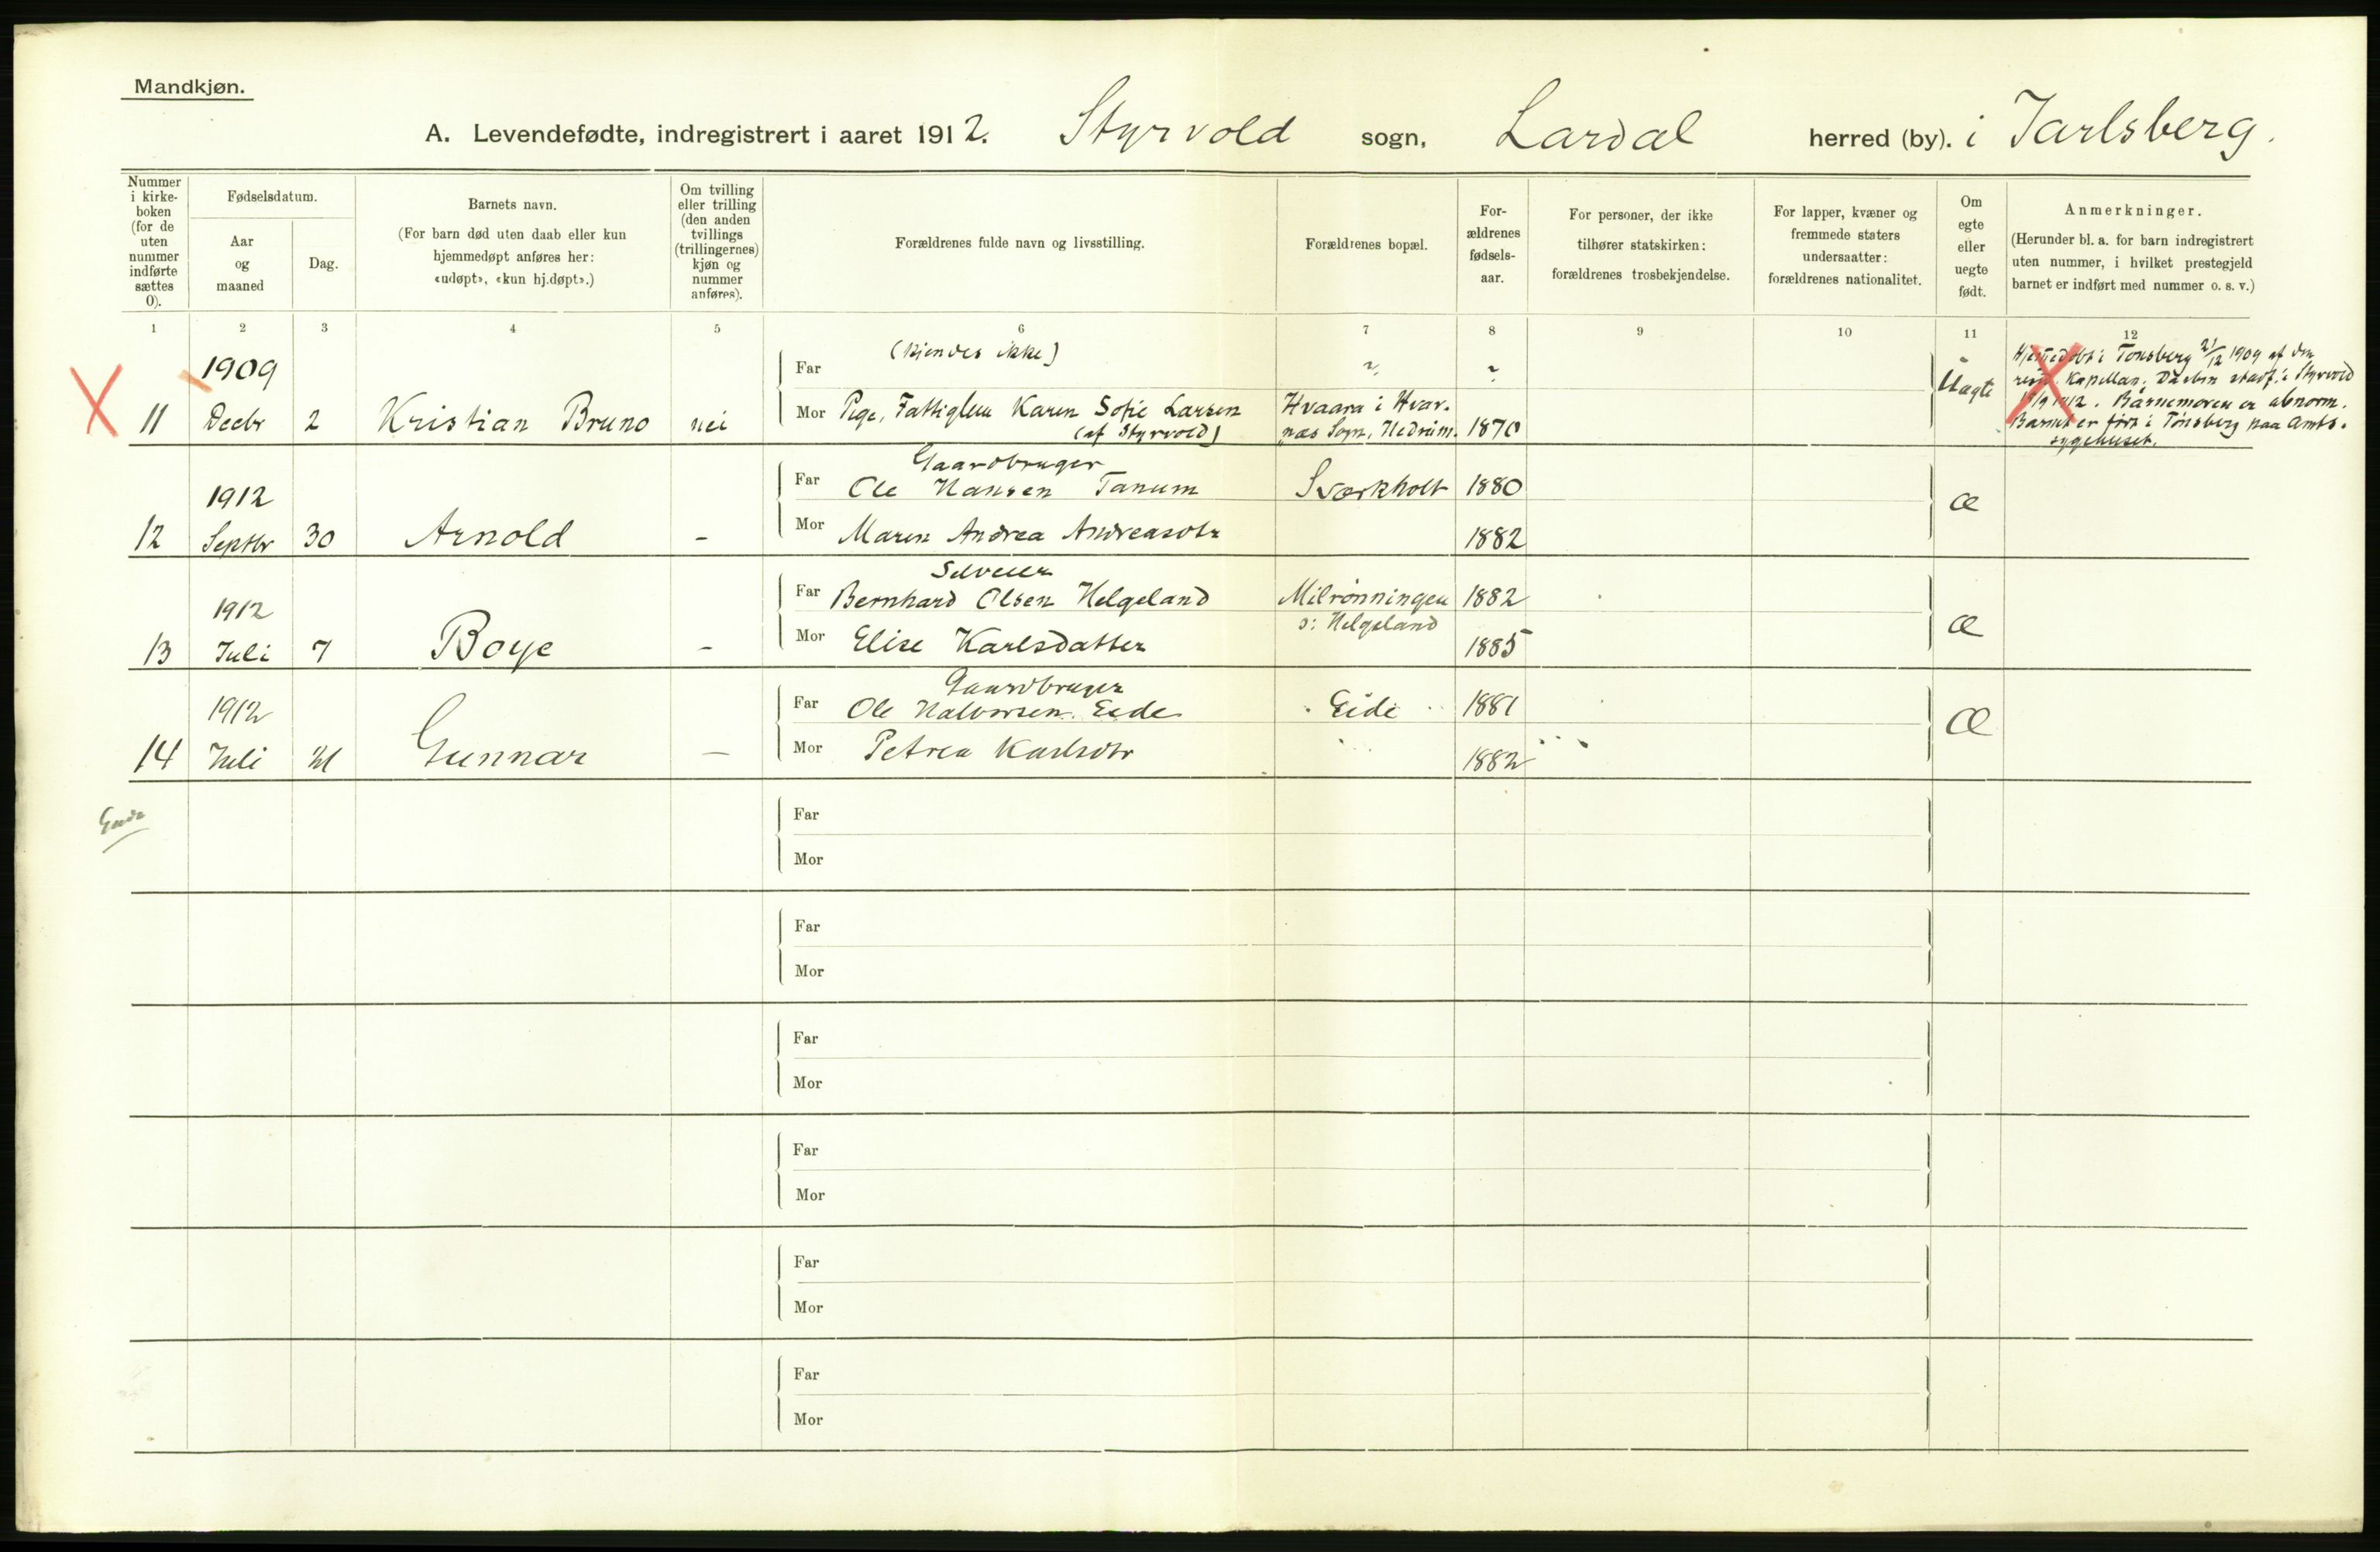 Mandkjøn.
A. Levendefødte, indregistrert i aaret 1912. Styrvold sogn, Lardal herred (by). i Jarlsberg.
Nummer i kirke- boken (for de uten nummer indførte sættes 0).
Fødselsdatum.
Aar og maaned
Dag.
Barnets navn.
(For barn død uten daab eller kun
hjemmedøpt anføres her:
«udøpt», «kun hj.døpt».)
Om tvilling
eller trilling
(den anden
tvillings
(trillingernes)
kjøn og
nummer
anføres).
Forældrenes fulde navn og livsstilling.
Forældrenes bopæl.
For-
ældrenes
fødsels-
aar.
For personer, der ikke
tilhører statskirken:
forældrenes trosbekjendelse.
For lapper, kvæner og
fremmede staters
undersaatter:
forældrenes nationalitet.
Om
egte
eller
uegte
født.
Anmerkninger.
(Herunder bl. a. for barn indregistrert
uten nummer, i hvilket prestegjeld
barnet er indført med nummer o. s. v.)
1 2 3 4 5 6 7 8 9 10 11 12
11 1909 Decbr 2 Kristian Bruno nei
Far (kjendes ikke) ? ?
Mor Pige, Fattiglem Karen Sofie Larsen
(af Styrvold)
Hvaara i Hvar-
næs Sogn, Hedrum. 1870
Uægte
Hjemedøbt i Tønsberg 21/12 1909 af den
resid. Kapellan. Daaben stadf. i Styrvold
1912. Barnemoren er abnorm.
Barnet er født i Tønsberg paa Amts-
sygehuset.
12 1912 Septbr 30 Arnold -
Gaardbruger
Far Ole Hansen Tanum Sværkholt 1880
Mor Maren Andrea Andreasdtr 1882
Æ
13 1912 Juli 7 Boye -
Selveier
Far Bernhard Olsen Helgeland Milrønningen 1882
o: Helgeland
Mor Elise Karlsdatter 1885
Æ
14 1912 Juli 21 Gunnar -
Gaardbruger
Far Ole Halvorsen Eide Eide 1881
Mor Petrea Karlsdtr 1882
Æ
Far
Mor
Far
Mor
Far
Mor
Far
Mor
Far
Mor
Far
Mor